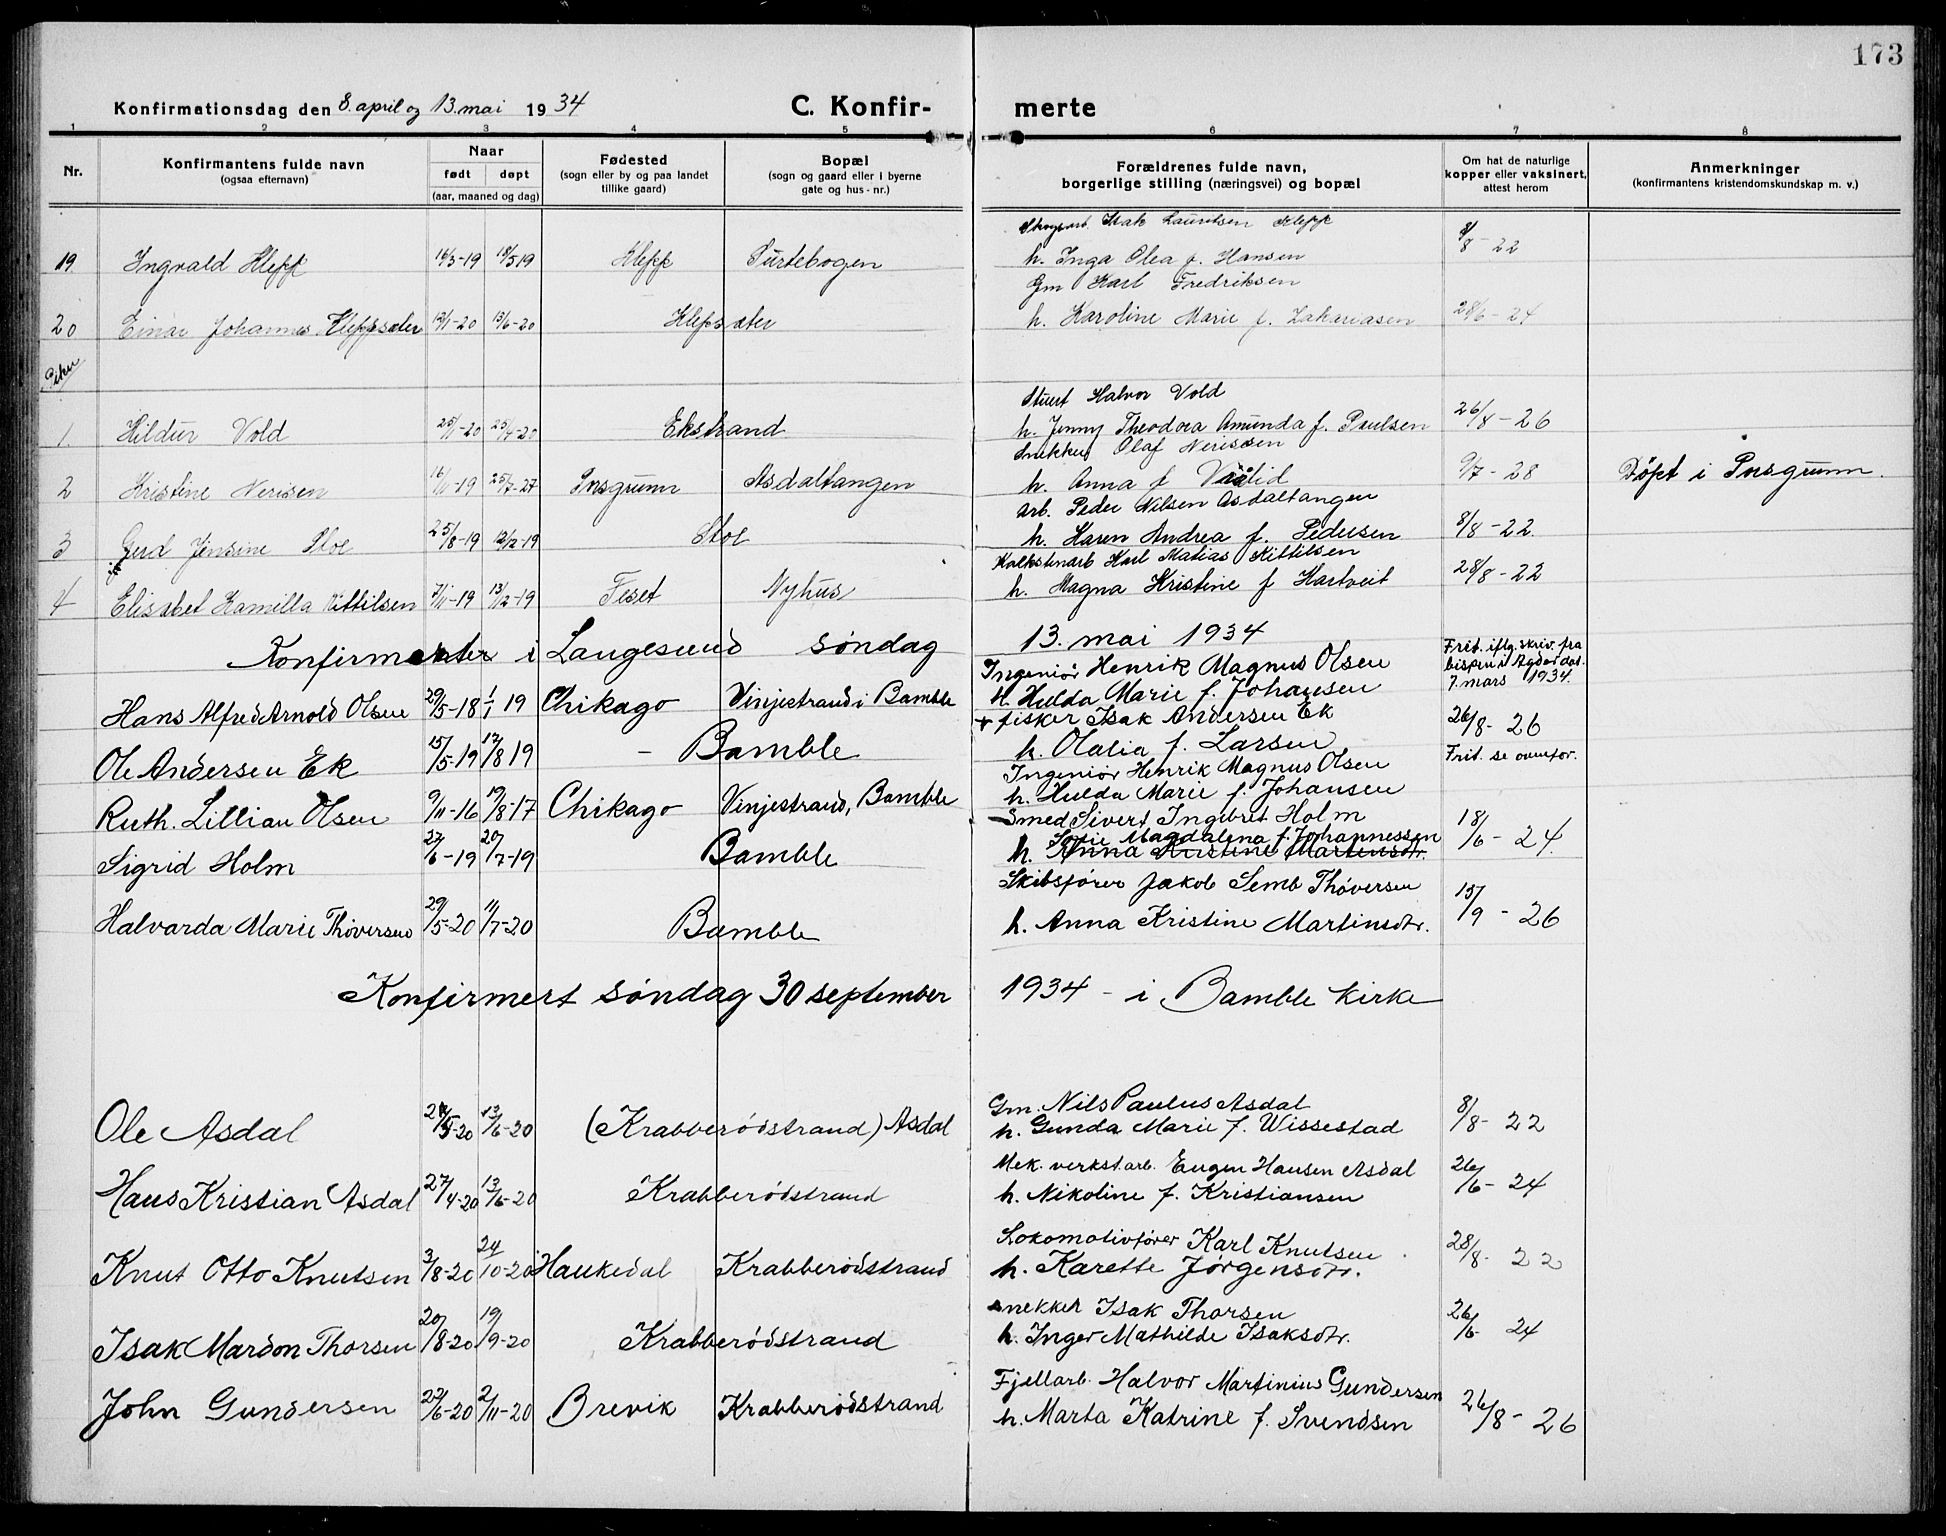 173
Konfirmationsdag den 8. april og 13. mai 1934 C. Konfir- merte
1 2 3 4 5 6 7 8
Nr.
Konfirmantens fulde navn
(ogsaa efternavn)
Naar
født døpt
(aar, maaned og dag)
Fødested
(sogn eller by og paa landet
tillike gaard)
Bopæl
(sogn og gaard eller i byerne
gate og hus - nr.)
Forældrenes fulde navn,
borgerlige stilling (næringsvei) og bopæl
Om hat de naturlige
kopper eller vaksinert,
attest herom
Anmerkninger
(konfirmantens kristendomskundskap m. v.)
Isak Lauritsen Klepp
19 Ingvald Klepp 16/3-19 18/5 19 Klepp Surtebogen h. Inga Olea f. Hansen 8/8-22
Gm Karl Fredriksen
20 Einar Johannes Kleppsæter 12/1-20 13/6-20 Klepsæter h. Karoline Marie f. Zakariasen 28/6-24
Piker
Stuert Halvor Vold
1 Hildur Vold 25/1-20 25/4-20 Ekstrand h. Jenny Theodora Amunda f. Paulsen 26/8-26
Snekker Olaf Nerissen
2 Kristine Nerisen 16/11-19 25/7-27 Prsgrunn Asdaltangen h. Anna f 9/7-28 Døpt i Prsgrunn.
Arb. Peder Nilsen Asdaltangen
3 Gerd Jensine Stoe 25/8-19 12/12-19 Stoe h. Karen Andrea f. Pedersen 8/8-22.
Kalkstenarb Karl Matias Kittilsen
4 Elisabet Kamilla Kittilsen 7/11-19 13/12-19 Feset Nyhus h. Magna Kristine f Hartveit 28/8-22
Konfirmanter i Langesund søndag 13. mai 1934
Ingeniør Henrik Magnus Olsen Frit. iflg. skriv. fra
bispen i Agder dat.
7. mars 1934.
Hans Alfred Arnold Olsen 29/5-18 1/1 19 Chikago Vinjestrand i Bamble H. Hulda Marie f. Johansen
+ fisker Isak Andersen Ek 26/8-26
Ole Andersen Ek 15/5-19 17/8 19 - Bamble h. Olalia f. Larsen
Ingeniør Henrik Magnus Olsen Frit. se ovenfor.
Ruth. Lillian Olsen 9/11-16 19/8-17 Chikago Vinjestrand, Bamble h. Hulda Marie f. Johansen
Smed Sivert Ingebret Holm 18/6-24.
Sofie Magdalena f. Johannessen
Sigrid Holm 27/6-19 20/7-19 Bamble h. Anna Kristine Martinsdtr.
Skibsfører Jakob Semb Thøversen
Halvarda Marie Thøversen 29/5-20 11/7-20 Bamble h. Anna Kristine Martinsdtr. 15/9-26
Konfirmert søndag 30 september 1934 - i Bamble kirke
Gm. Nils Paulus Asdal
Ole Asdal 24/5-20 13/6-20 (Krabberødstrand) Asdal h. Gunda Marie f. Wissestad 8/8-22
Mek. verkst.arb. Eugen Hansen Asdal
Hans Kristian Asdal 27/4-20 13/6-20 Krabberødstrand h. Nikoline f. Kristiansen 26/6-24
Lokomotivfører Karl Knutsen
Knut Otto Knutsen 3/8-20 24/10-20 Haukedal Krabberødstrand h. Karette Jørgensdtr. 28/8-22
snekker Isak Thorsen
Isak Mardon Thorsen 20/8-20 19/9-20 Krabberødstrand h. Inger Mathilde Isaksdtr. 26/6-24
Fjellarb. Halvor Martinius Gundersen
John Gundersen 22/6-20 2/11-20 Brevik Krabberødstrand h. Marta Katrine f. Svendsen 26/8-26